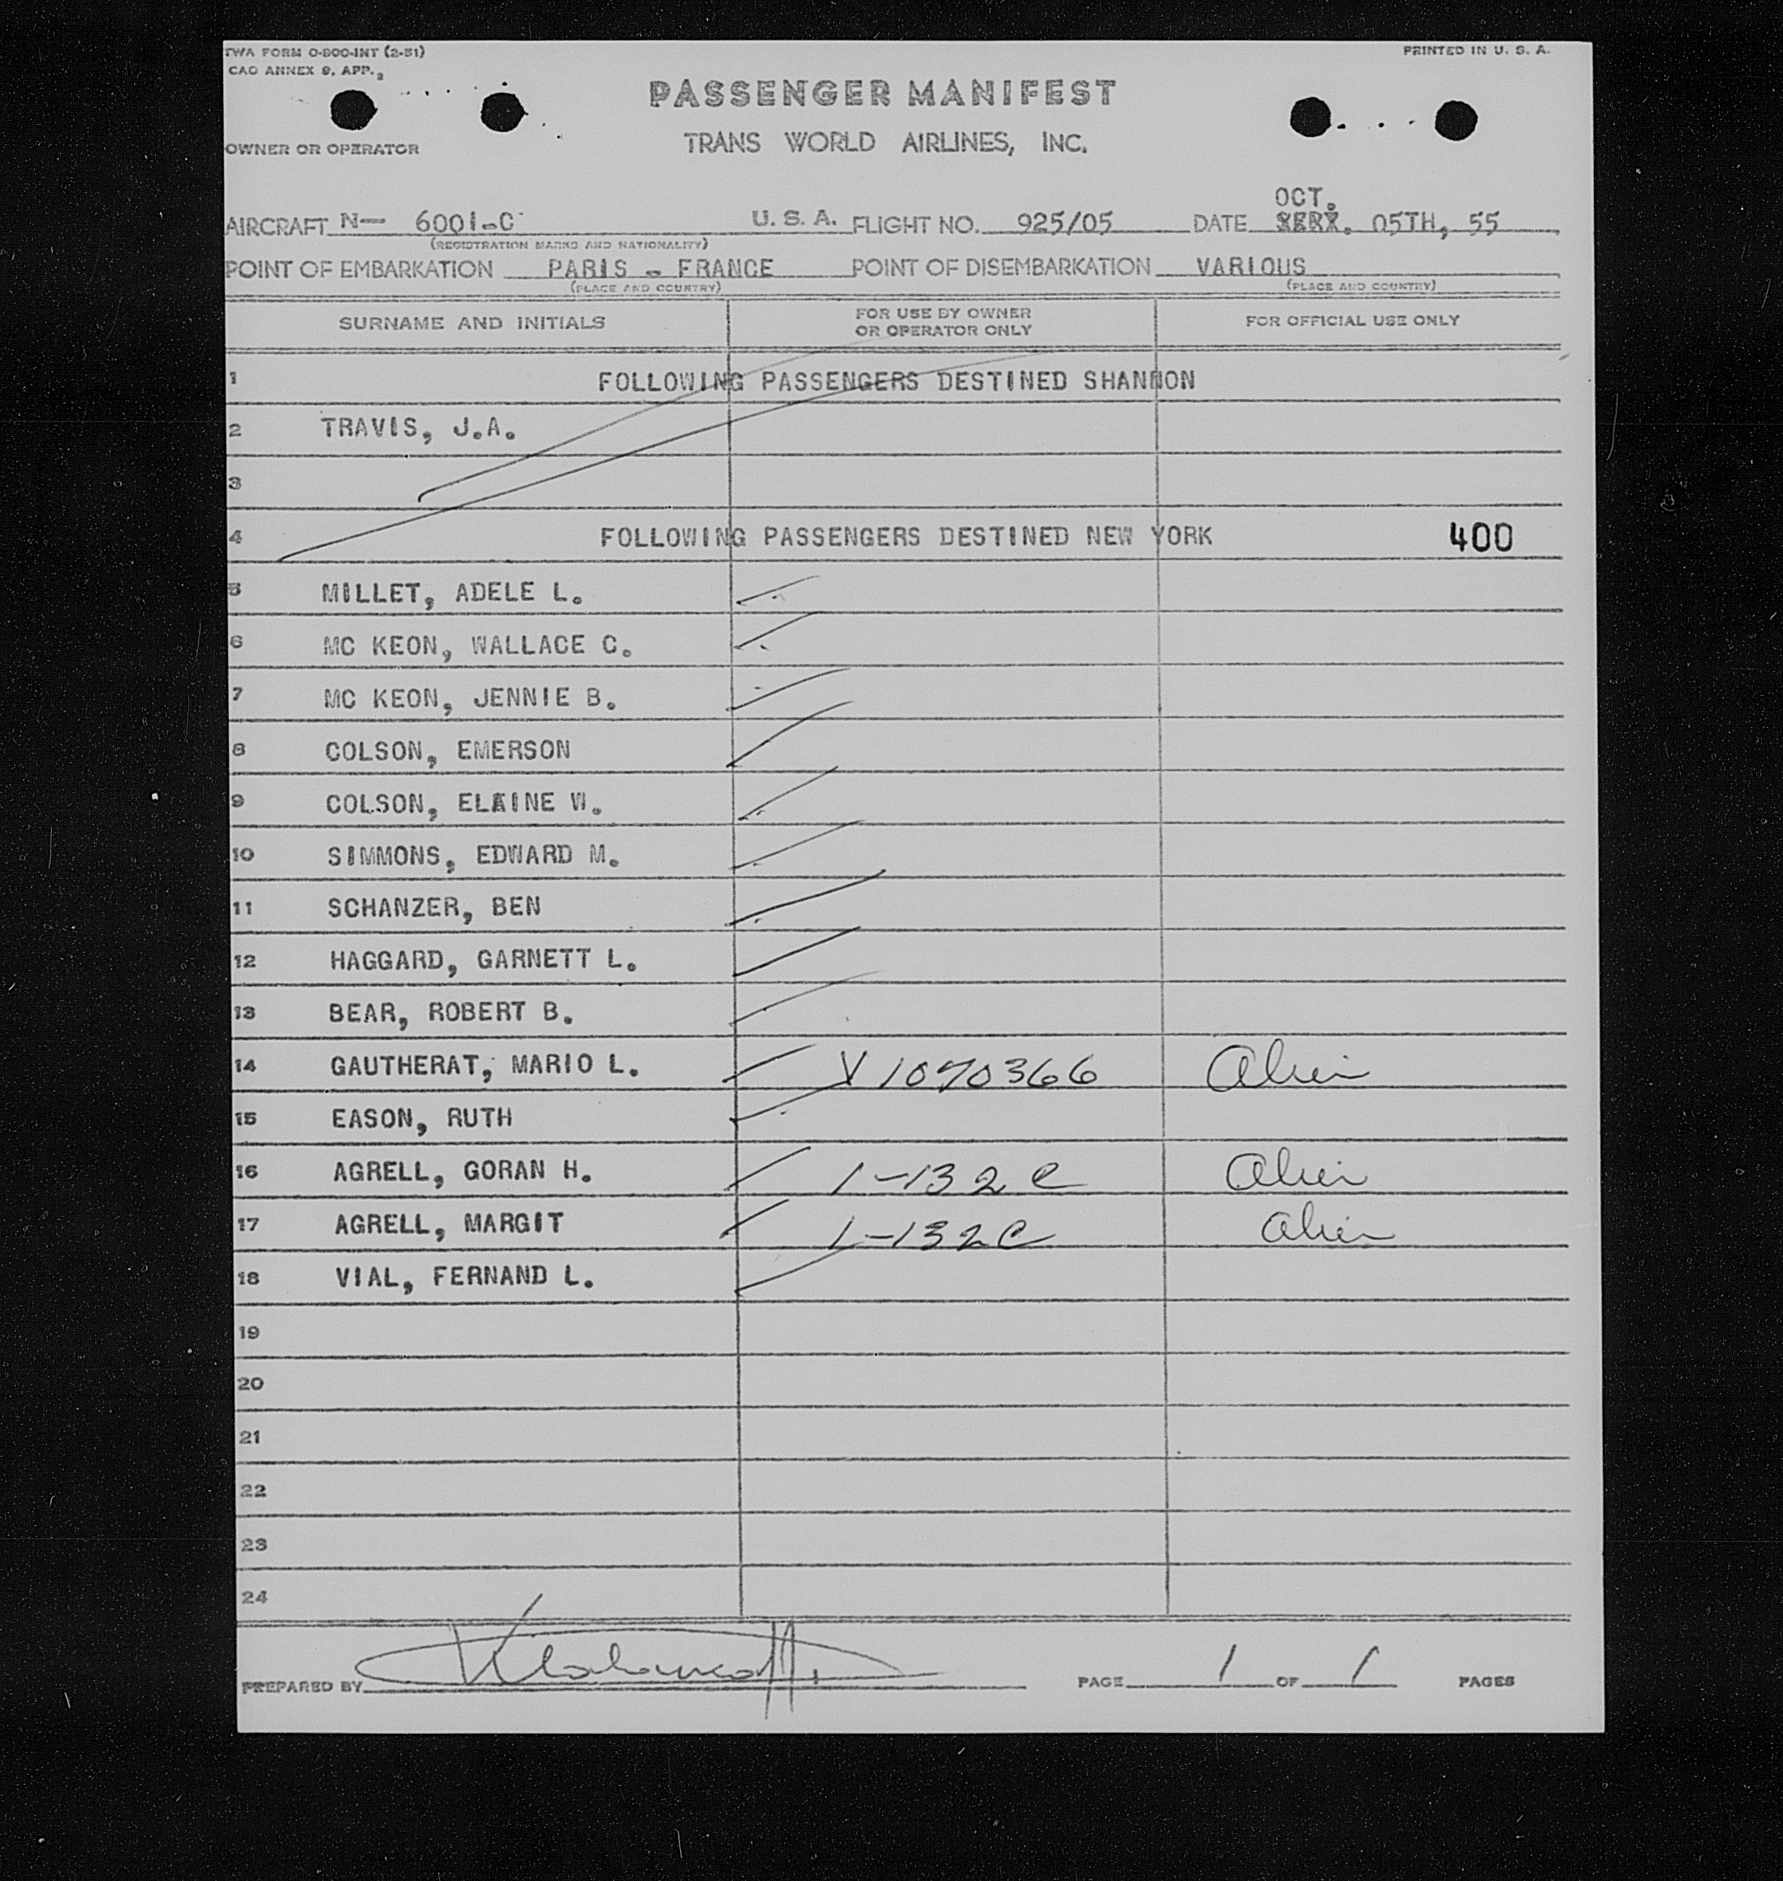 TWA FORM O-800-INT (2-51)
PRINTED IN U. S. A.
CAO ANNEX 9, APP. 2
PASSENGER MANIFEST
OWNER OR OPERATOR
TRANS WORLD AIRLINES, INC.
OCT.
AIRCRAFT N— 6001-C U. S. A. FLIGHT NO. 925/05 DATE 05TH, 55
(REGISTRATION MARKS AND NATIONALITY)
POINT OF EMBARKATION PARIS - FRANCE POINT OF DISEMBARKATION VARIOUS
(PLACE AND COUNTRY) (PLACE AND COUNTRY)
SURNAME AND INITIALS FOR USE BY OWNER OR OPERATOR ONLY FOR OFFICIAL USE ONLY
1 FOLLOWING PASSENGERS DESTINED SHANNON
2 TRAVIS, J.A.
3
4 FOLLOWING PASSENGERS DESTINED NEW YORK 400
5 MILLET, ADELE L.
6 MC KEON, WALLACE C.
7 MC KEON, JENNIE B.
8 COLSON, EMERSON
9 COLSON, ELAINE W.
10 SIMMONS, EDWARD M.
11 SCHANZER, BEN
12 HAGGARD, GARNETT L.
13 BEAR, ROBERT B.
14 GAUTHERAT, MARIO L. V 1070366 Alien
15 EASON, RUTH
16 AGRELL, GORAN H. 1-132 C Alien
17 AGRELL, MARGIT 1-132C Alien
18 VIAL, FERNAND L.
19
20
21
22
23
24
PREPARED BY
PAGE 1 OF 1 PAGES